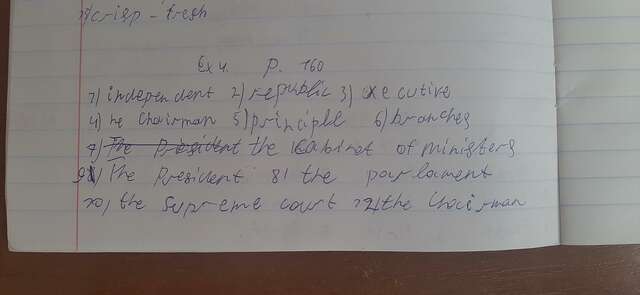 crisp - fresh
Ex 4. p. 160
1) independent 2) republic 3) executive
4) he Chairman 5) principle 6) branches
7) The President the Cabinet of ministers
9) The President 8) the parlament
10) the Supreme court 12) the Chairman